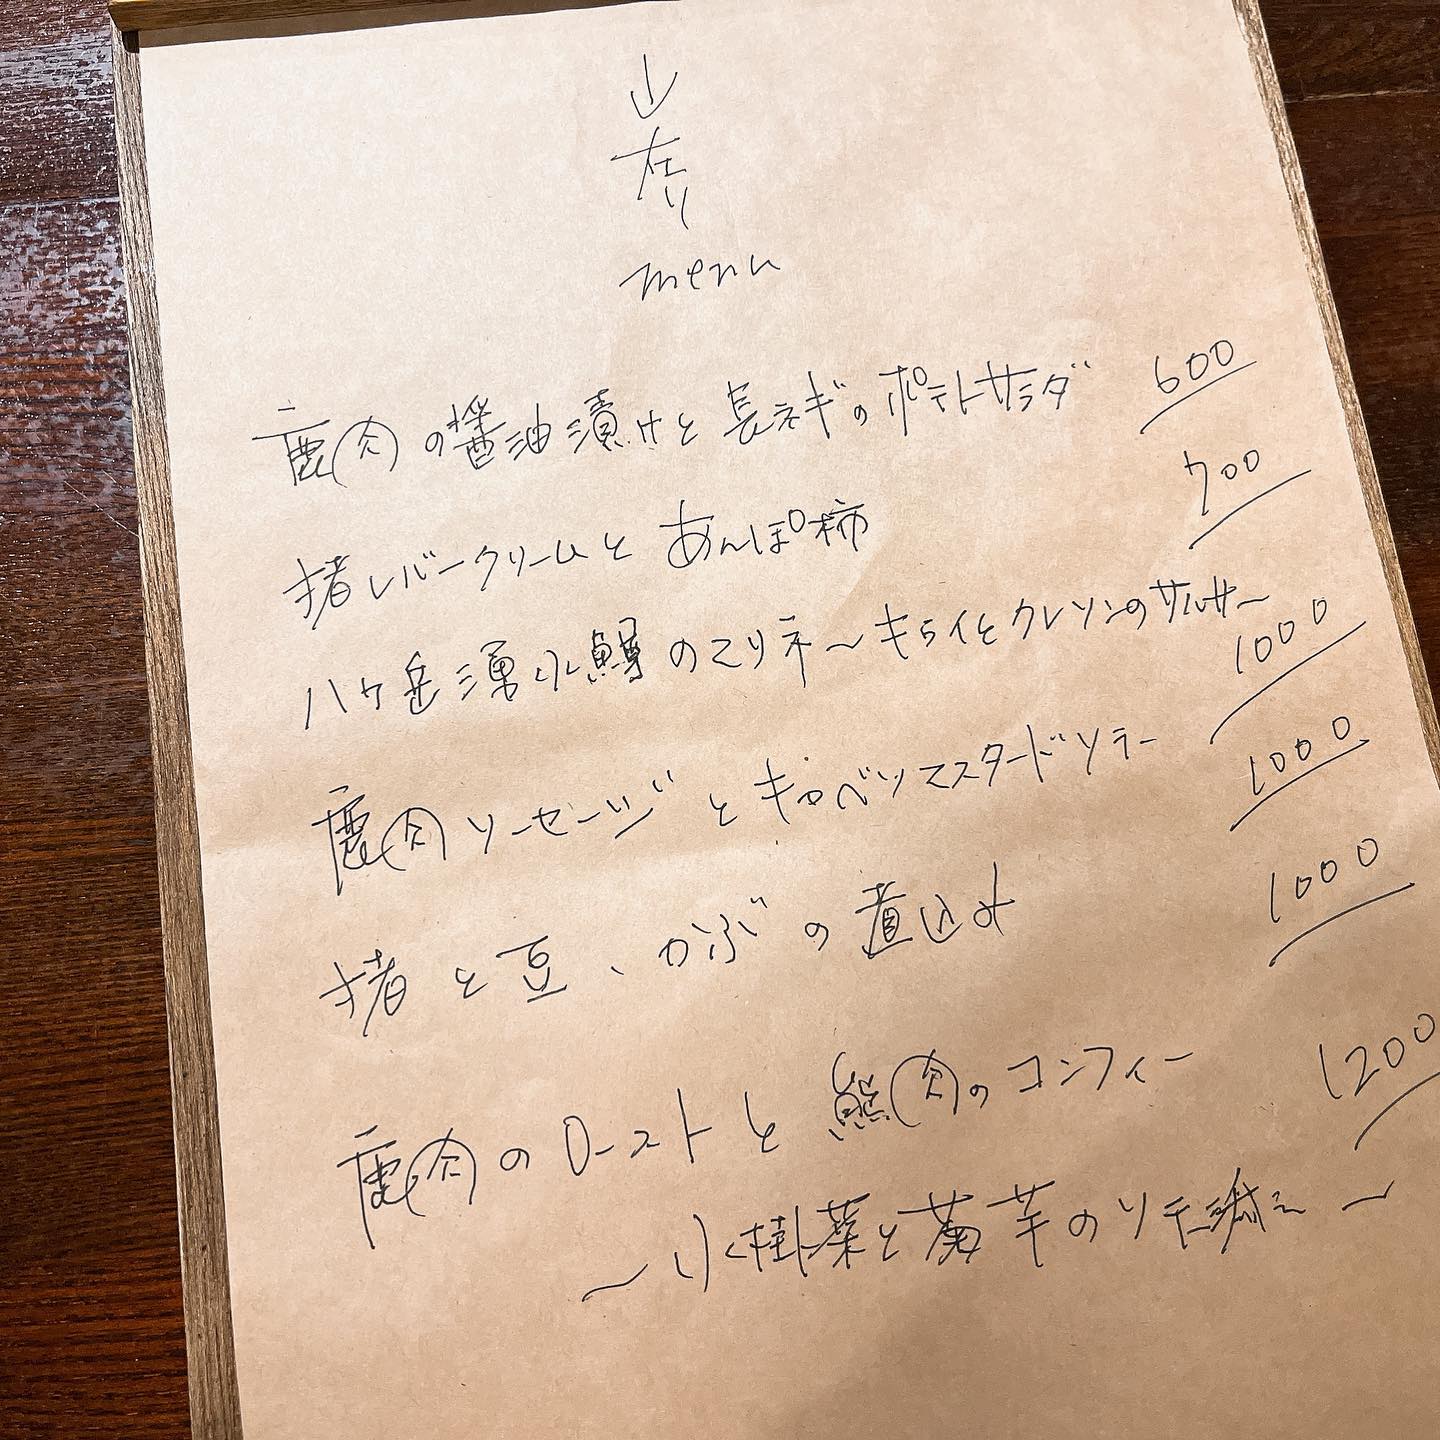 山
在り
menu
鹿肉の醤油漬けと長ネギのポテトサラダ 600
猪レバークリームとあんぽ柿 700
八ケ岳湧水鱒のマリネ〜キウイとクレソンのサルサ〜 1000
鹿肉ソーセージとキャベツマスタードソテー 1000
猪と豆、かぶの煮込み 1000
鹿肉のローストと熊肉のコンフィー 1200
〜水掛菜と菊芋のソテー添え〜